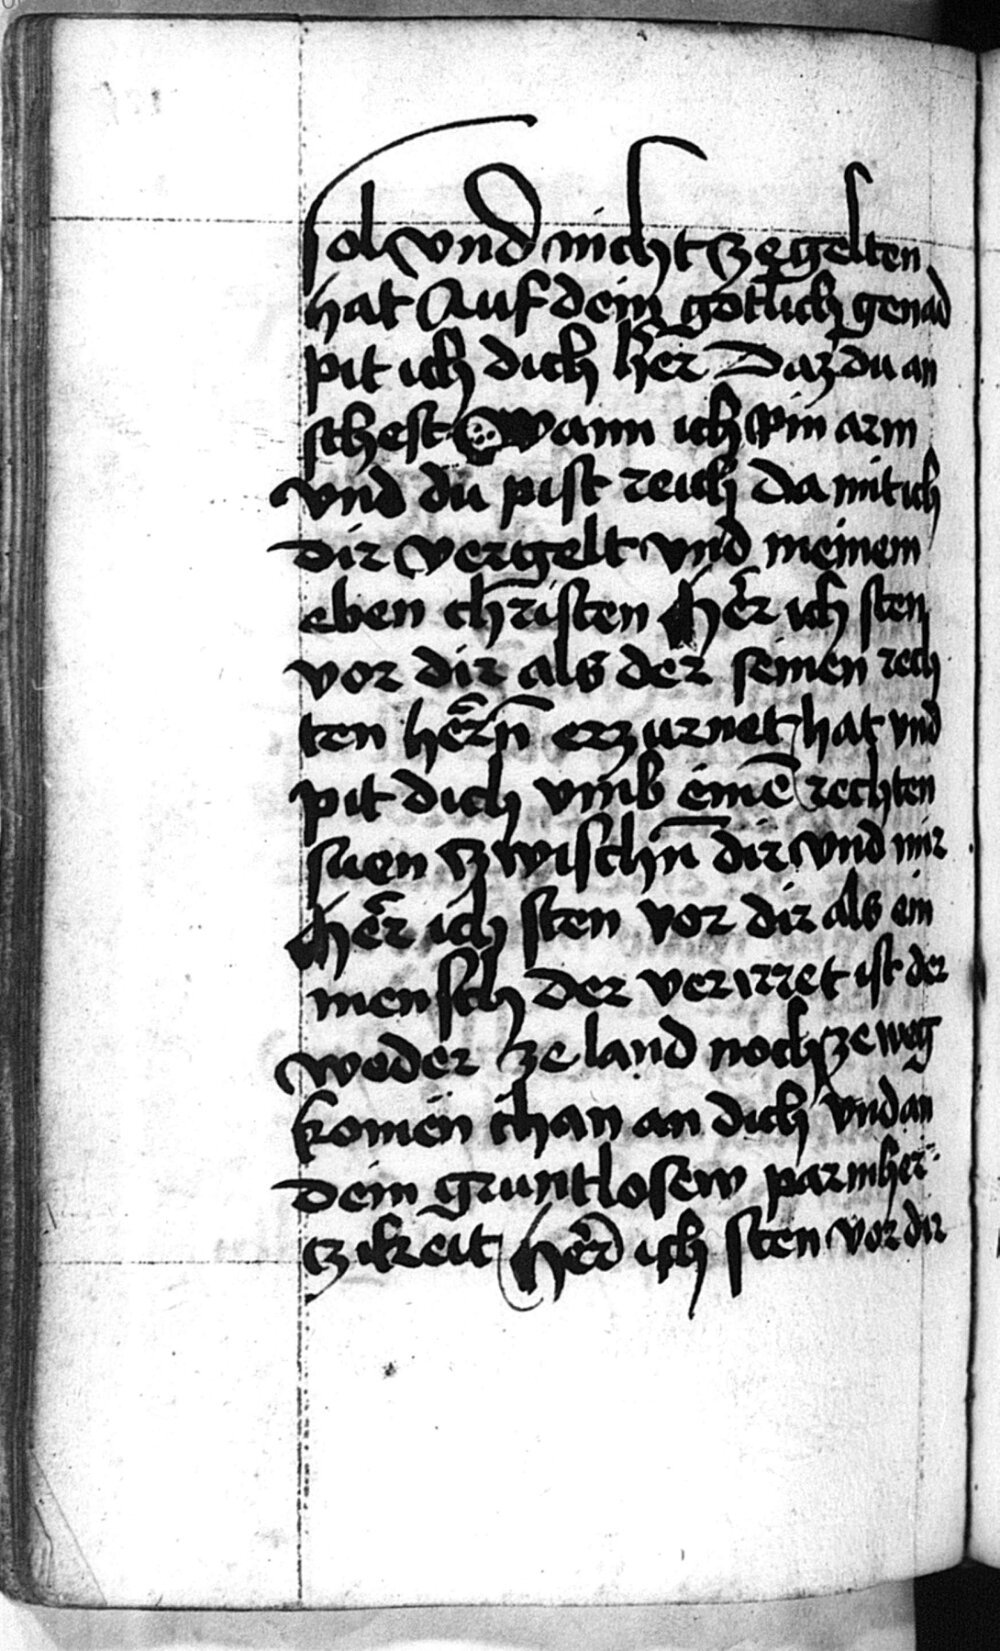 sol vnd nicht ze gelten
hat Auf dein gotlich genad
pit ich dich her Daz du an
sehest Wann ich pin arm
vnd du pist reich da mit ich
dir vergelt vnd meinem
eben christen her ich sten
vor dir als der seinen rech
ten herrn erzurnet hat vnd
pit dich vmb eine rechten
suen zwischn dir vnd mir
her ich sten vor dir als ein
mensch der verirret ist der
weder ze land noch ze weg
komen chan an dich vnd an
dein gruntlosew parmher
tzikeit her ich sten vor dir